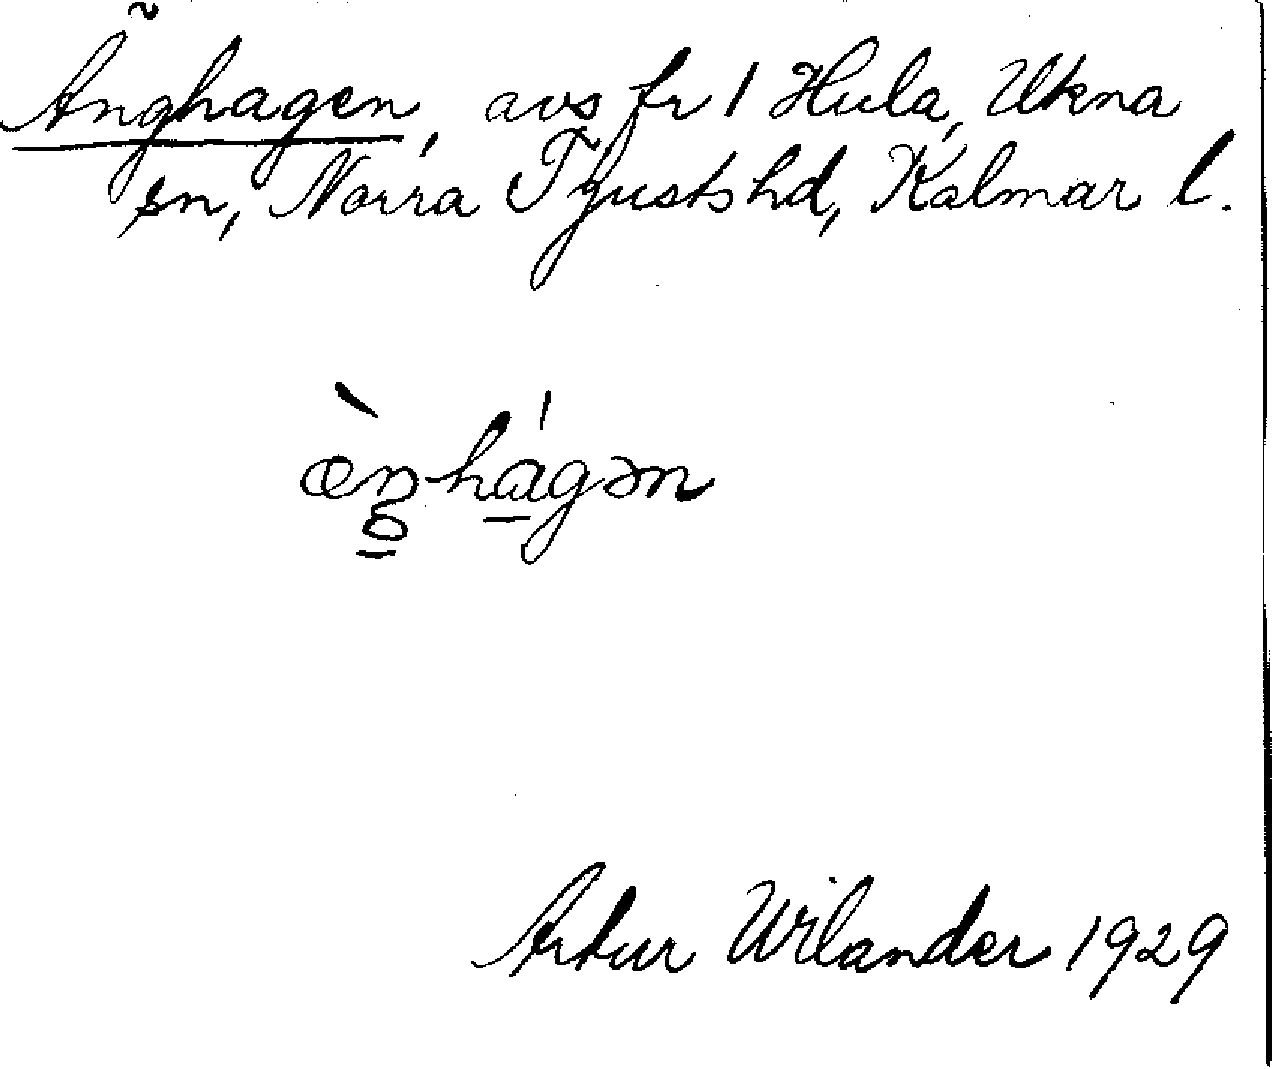 Änghagen, avs fr 1 Hula, Ukna
sn, Norra Tjusts hd, Kalmar l.
æ̀ŋhágən
Artur Wilander 1929